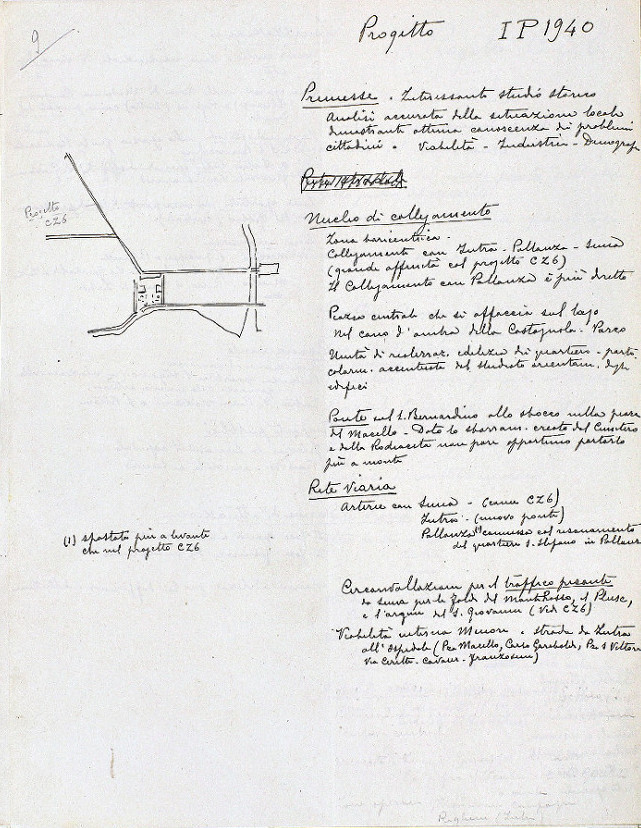 9
Progetto IP 1940
Premesse. Interessante studio storico
Analisi accurata della situazione locale
dimostrante ottima conoscenza di problemi
cittadini. Viabilità - Industria - Demograf
Progetto
CZ6
Nucleo di collegamento
Zona baricentrica -
Collegamento con Intra - Pallanza - Suna
(grande affinità col progetto CZ6)
Il Collegamento con Pallanza è più diretto
Piazza centrale che si affaccia sul lago
nel cono d'ombra della Castagnola. Parco
Unità di realizzaz. edilizia di quartiere - parti
colarm. accentuata dal studiato orientam. degli
edifici
Ponte sul S. Bernardino allo sbocco nella piazza
del Macello - Dato lo sbarram. creato dal Cimitero
e dalla Rodiaceta non pare opportuno portarlo
più a monte
Rete Viaria
Arterie con Suna - (come CZ6)
Intra - (nuovo ponte)
Pallanza (1) connessa col risanamento
del quartiere S. Stefano in Pallanz
(1) spostata più a levante
che nel progetto CZ6
Circonvallazione per il traffico pesante
da Suna per le falde del MonteRosso, il Plusc,
e l'argine del S. Giovanni (Vedi CZ6)
Viabilità interna Minore e strada da Intra
all'Ospedale (Pza Macello, Corso Garibaldi, Pza S Vittore
Via Cavour - Franzosini)